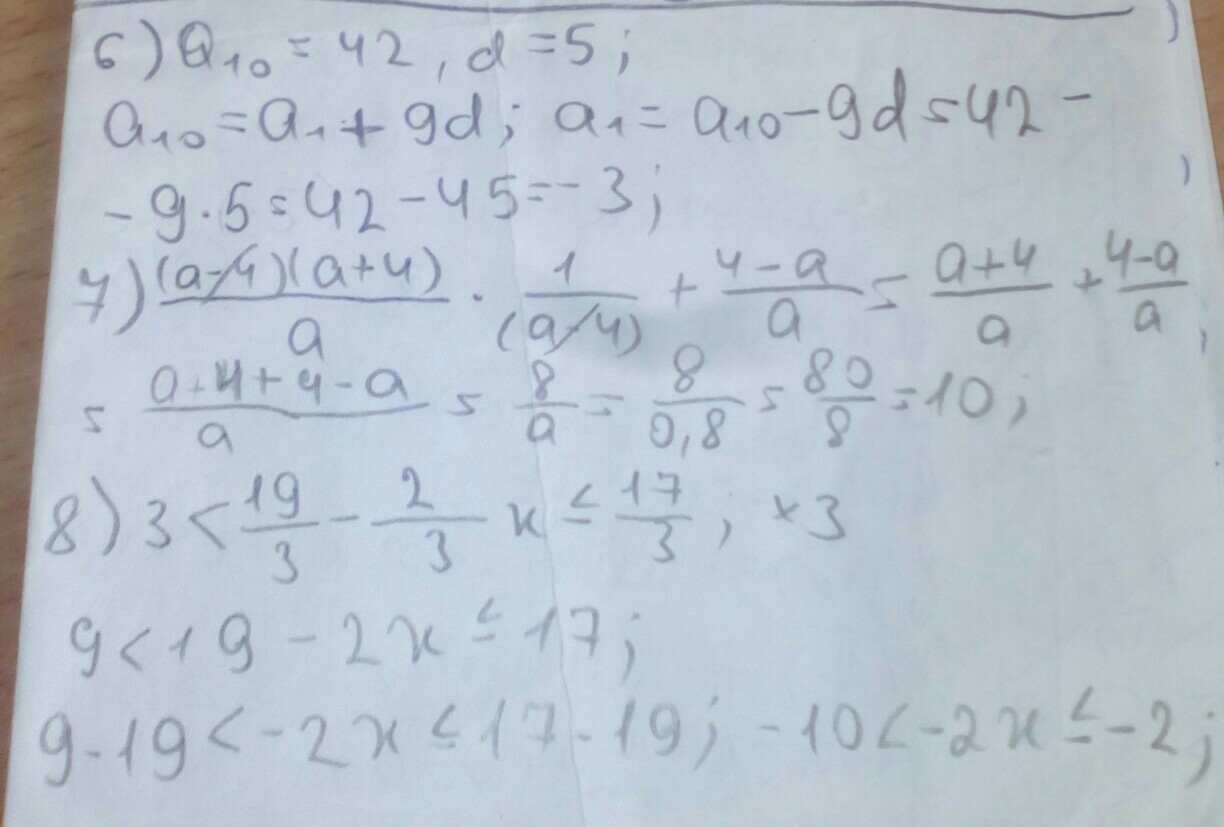 6) a₁₀ = 42, d = 5;
a₁₀ = a₁ + 9d; a₁ = a₁₀ - 9d = 42 -
- 9 · 5 = 42 - 45 = -3;
7) (a-4)(a+4)/a · 1/(a-4) + (4-a)/a = (a+4)/a + (4-a)/a
= (a+4+4-a)/a = 8/a = 8/0,8 = 80/8 = 10;
8) 3 < 19/3 - 2/3 x ≤ 17/3; ×3
9 < 19 - 2x ≤ 17;
9-19 < -2x ≤ 17-19; -10 < -2x ≤ -2;